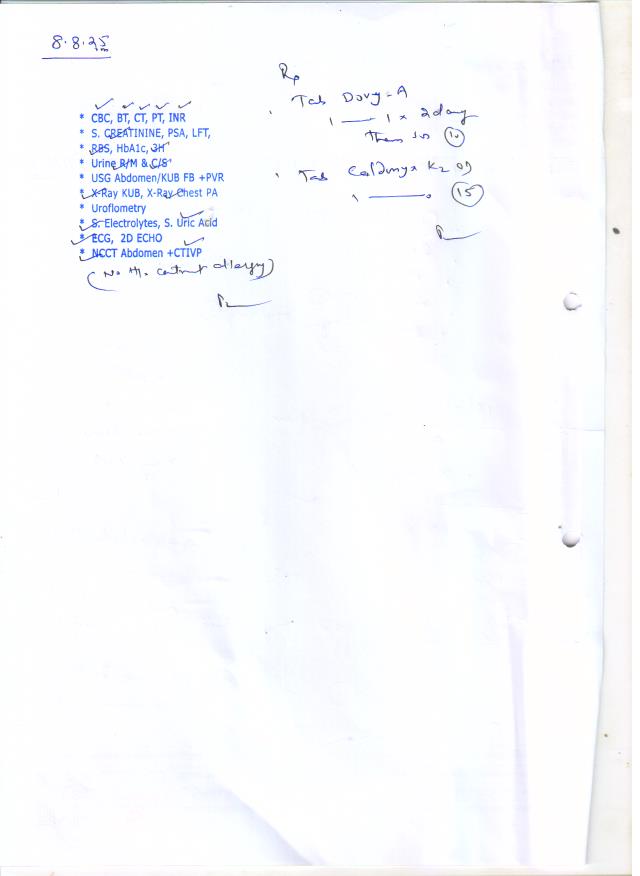 8.8.25
* CBC, BT, CT, PT, INR
* S. CREATININE, PSA, LFT,
* RBS, HbA1c, 3H
* Urine R/M & C/S
* USG Abdomen/KUB FB +PVR
* X-Ray KUB, X-Ray Chest PA
* Uroflometry
* S. Electrolytes, S. Uric Acid
* ECG, 2D ECHO
* NCCT Abdomen +CTIVP
(No H/o contrast allergy)
Rx
Tab
1 — 1 x 2 day
then (10)
Tab K2
1 — 0 (15)